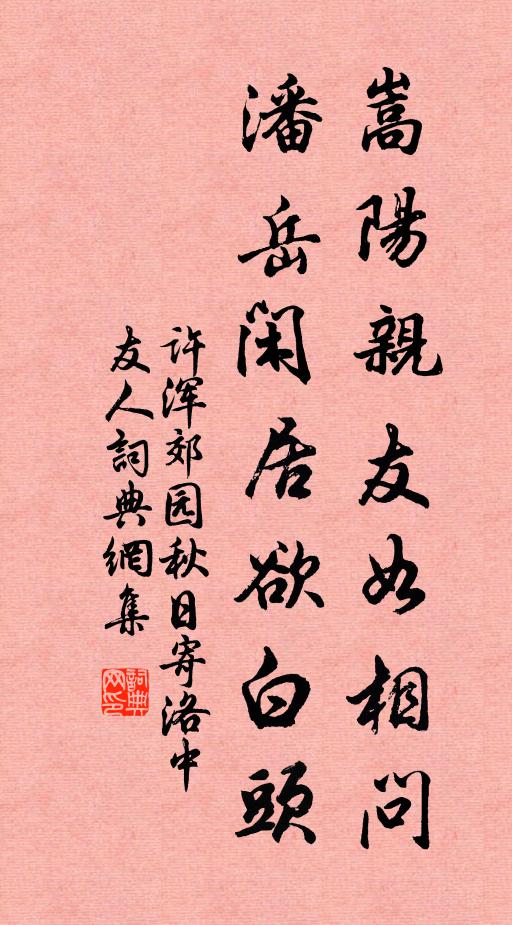 嵩陽親友如相問
潘岳閑居欲白頭
许浑郊园秋日寄洛中
友人詞典網集
詞典
网印